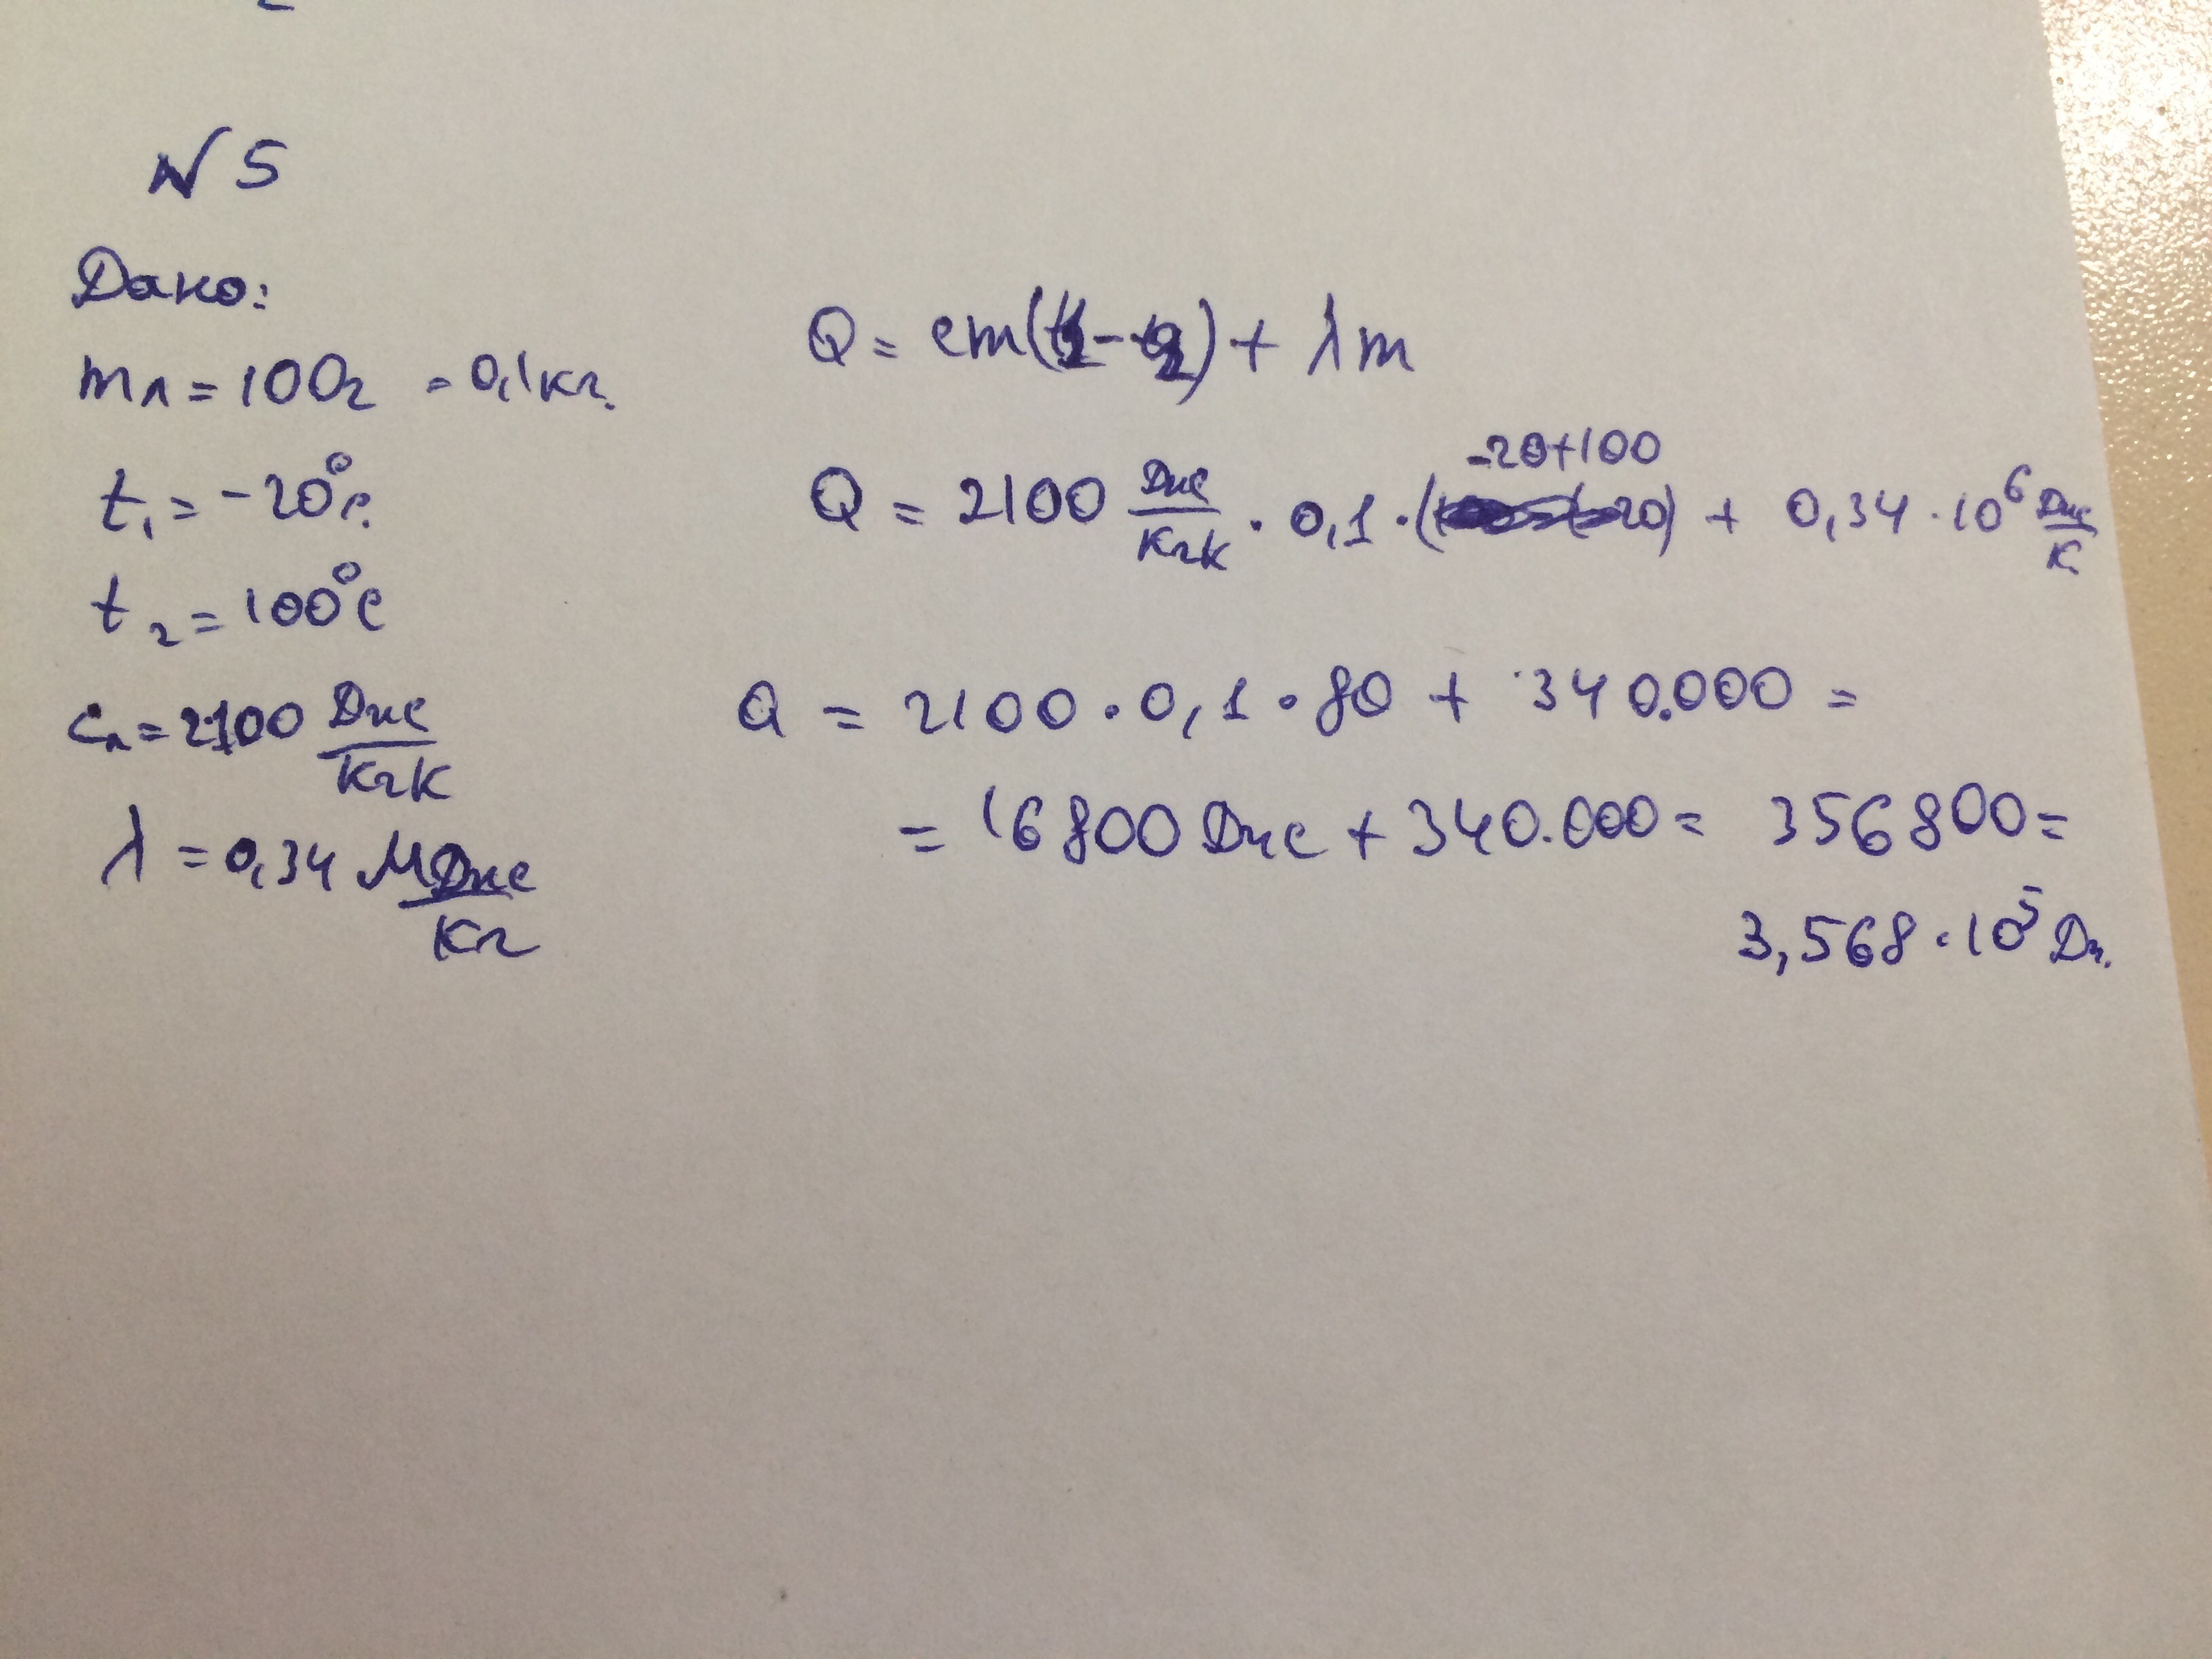 №5
Дано:
mл = 100г = 0,1кг.
t₁ = -20°С.
t₂ = 100°С
cл = 2100 Дж/КгК
λ = 0,34 МДж/Кг
Q = cm(t₁ - t₂) + λm
-20+100
Q = 2100 Дж/КгК · 0,1 · ( 20) + 0,34 · 10⁶ Дж/К.
Q = 2100 · 0,1 · 80 + 340.000 =
= 16800 Дж + 340.000 = 356800 =
3,568 · 10⁵ Дж.